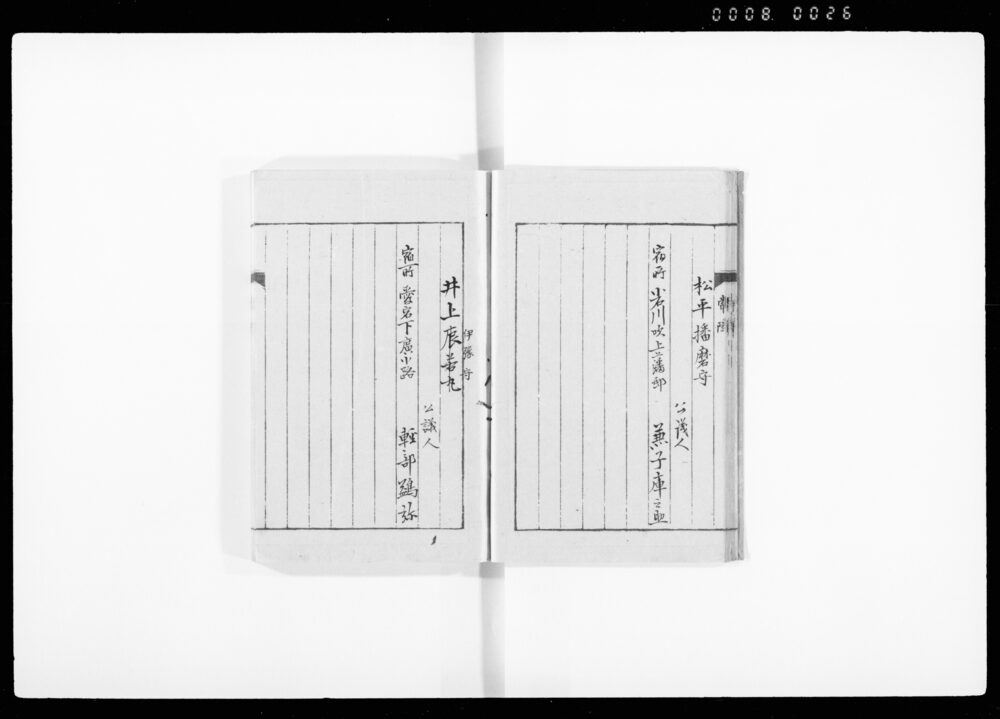 0008 0026
常陸
松平播磨守
公議人
宿所 岩川吹上藩邸 兼子庫
井上辰若丸
公議人
宿所 愛宕下廣小路 軽部 弥